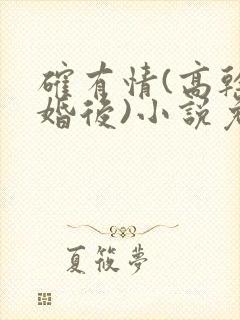 確有情(高幹
婚後)小說免
夏筱夢